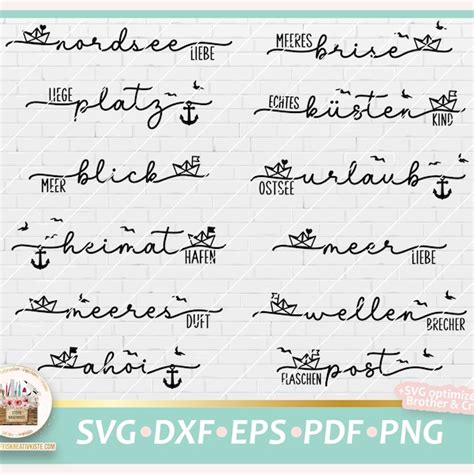 nordsee LIEBE
MEERES brise
LIEGE platz
ECHTES küsten KIND
MEER blick
OSTSEE urlaub
heimat HAFEN
meer LIEBE
meeres DUFT
wellen BRECHER
ahoi
FLASCHEN post
+SVG optimize
Brother & Cr
SVG•DXF•EPS•PDF•PNG